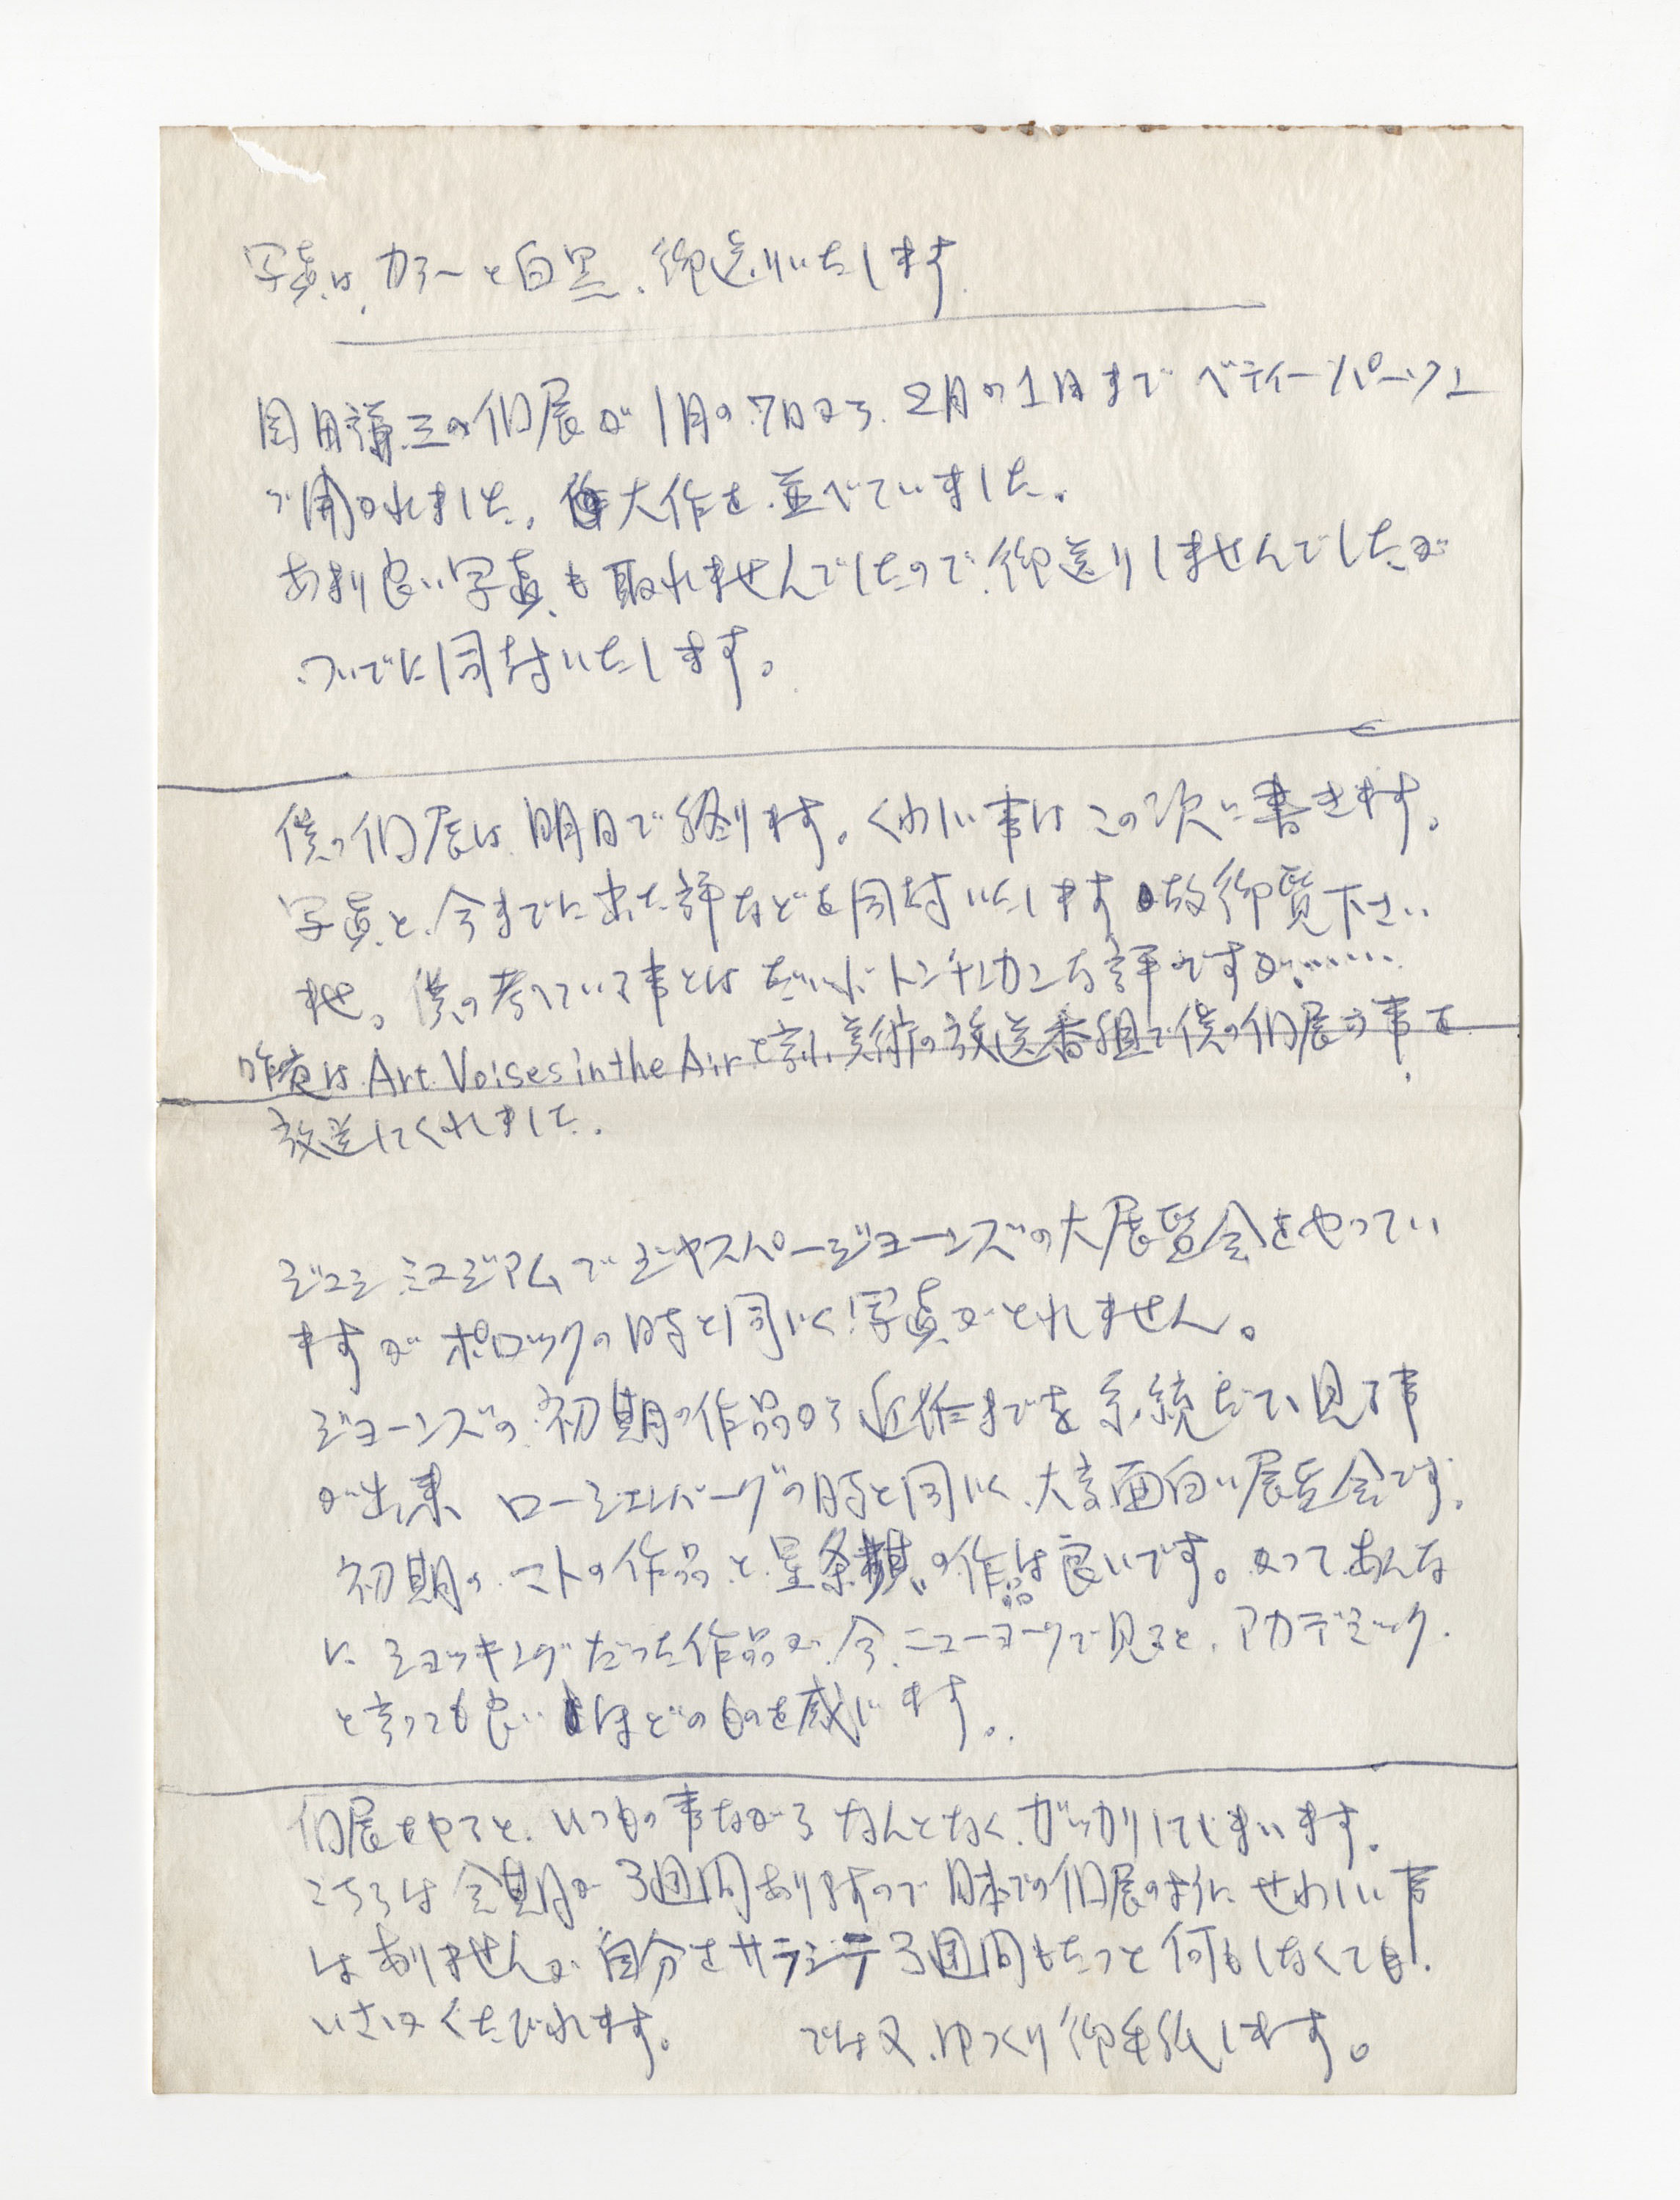 写真は、カラーと白黒、御送りいたします
岡田謙三の個展が1月の7日から、2月の1日までベティーパーソン
で開かれました。大作を並べていました。
あまり良い写真も取れませんでしたので、御送りしませんでしたが
ついでに同封いたします。
僕の個展は明日で終ります。くわしい事はこの次に書きます。
写真と、今までに出た評などを同封いたします故御覧下さい
ませ。僕の考えている事とはだいぶトンチンカンな評ですが……
昨夜は Art Voises in the Air と言ふ美術の放送番組で僕の個展の事を
放送してくれました。
ジュシミュジアムでジャスパージョーンズの大展覧会をやってい
ますがポロックの時と同じく写真がとれません。
ジョーンズの初期の作品から近作までを系統だてて見る事
が出来 ローシェンバーグの時と同じく、大変面白い展覧会です。
初期のマトの作品と星条旗の作品は良いです。かってあんな
にショッキングだった作品が、今、ニューヨークで見ると、アカデミック
と言っても良いほどのものを感じます。
個展をやると、いつもの事ながらなんとなく、ガッカリしてしまいます。
こちらは会期が3週間ありますので日本での個展の様にせわしい事
はありませんが自分をサラシテ3週間もたつと何もしなくても
いささかくたびれます。 では又、ゆっくり御手紙します。